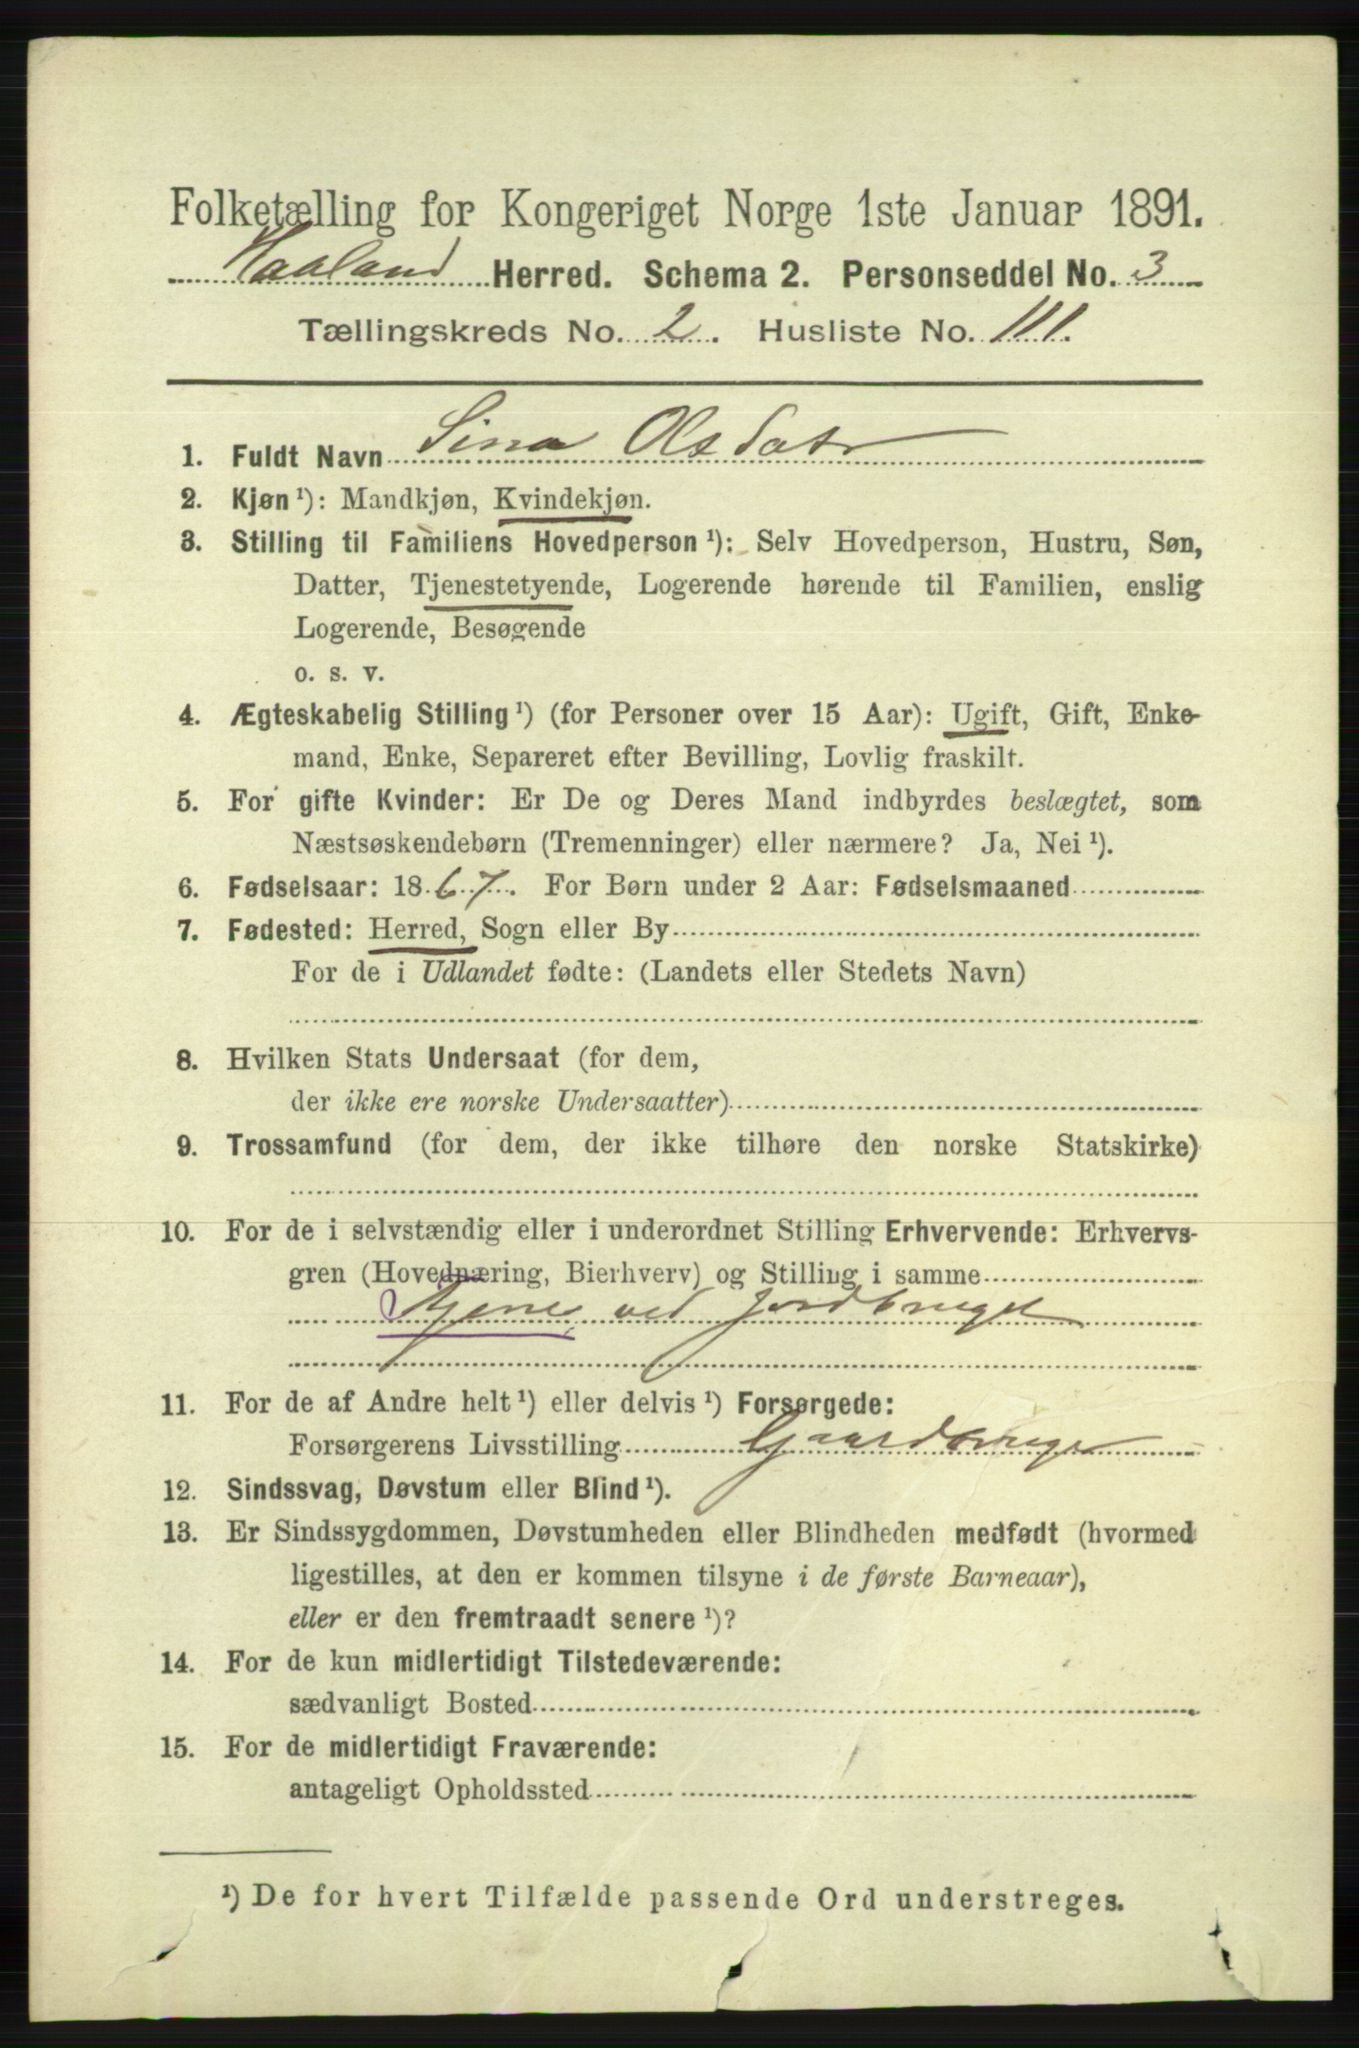 Folketælling for Kongeriget Norge 1ste Januar 1891.
Haaland Herred. Schema 2. Personseddel No. 3
Tællingskreds No. 2. Husliste No. 111.
1. Fuldt Navn Sina Olsdatr
2. Kjøn ¹): Mandkjøn, Kvindekjøn.
3. Stilling til Familiens Hovedperson ¹): Selv Hovedperson, Hustru, Søn,
Datter, Tjenestetyende, Logerende hørende til Familien, enslig
Logerende, Besøgende
o. s. v.
4. Ægteskabelig Stilling ¹) (for Personer over 15 Aar): Ugift, Gift, Enke-
mand, Enke, Separeret efter Bevilling, Lovlig fraskilt.
5. For gifte Kvinder: Er De og Deres Mand indbyrdes beslægtet, som
Næstsøskendebørn (Tremenninger) eller nærmere? Ja, Nei ¹).
6. Fødselsaar: 1867. For Børn under 2 Aar: Fødselsmaaned
7. Fødested: Herred, Sogn eller By
For de i Udlandet fødte: (Landets eller Stedets Navn)
8. Hvilken Stats Undersaat (for dem,
der ikke ere norske Undersaatter)
9. Trossamfund (for dem, der ikke tilhøre den norske Statskirke)
10. For de i selvstændig eller i underordnet Stilling Erhvervende: Erhvervs-
gren (Hovednæring, Bierhverv) og Stilling i samme
tjene ved jordbruget
11. For de af Andre helt ¹) eller delvis ¹) Forsørgede:
Forsørgerens Livsstilling Gaardbruger
12. Sindssvag, Døvstum eller Blind ¹).
13. Er Sindssygdommen, Døvstumheden eller Blindheden medfødt (hvormed
ligestilles, at den er kommen tilsyne i de første Barneaar),
eller er den fremtraadt senere ¹)?
14. For de kun midlertidigt Tilstedeværende:
sædvanligt Bosted
15. For de midlertidigt Fraværende:
antageligt Opholdssted
¹) De for hvert Tilfælde passende Ord understreges.